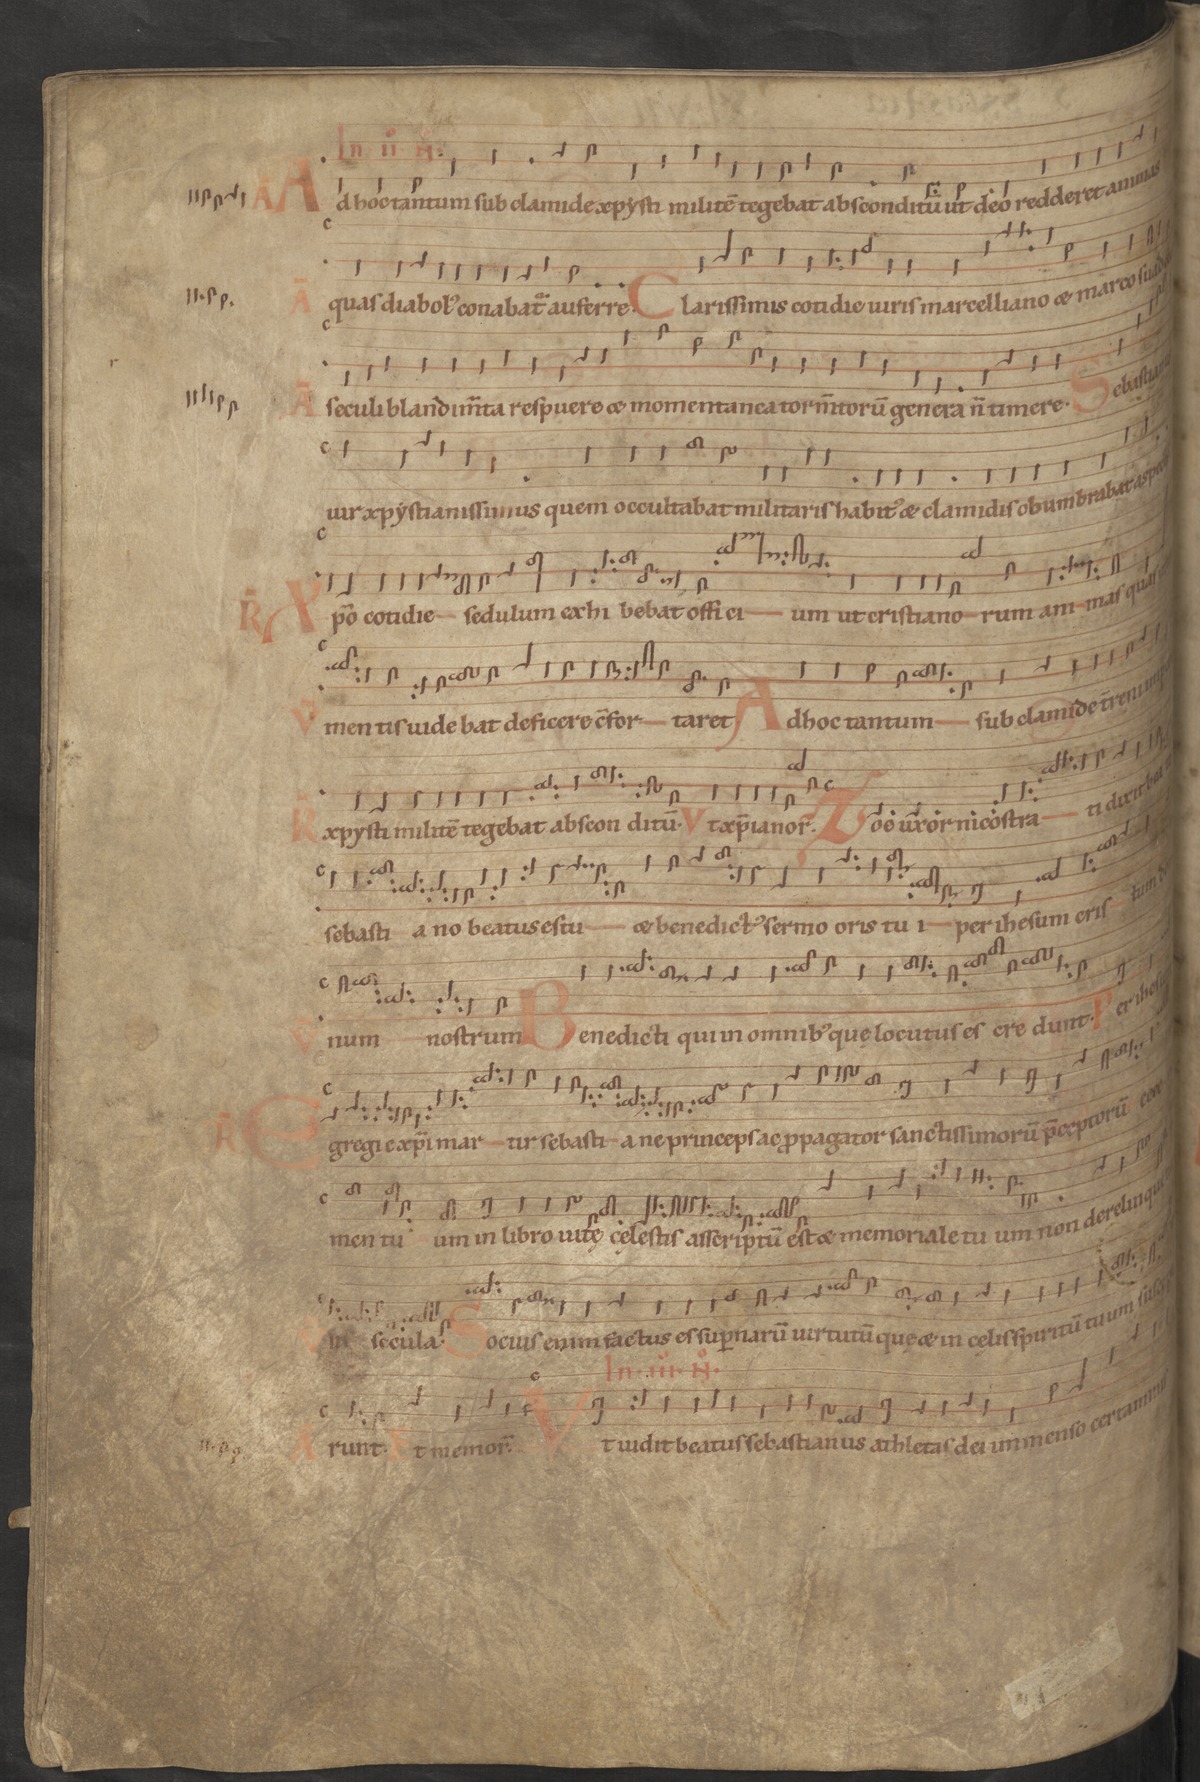 In ii N̄.
Ā Adhoc tantum sub clamide xpysti militē tegebat absconditū ut deo redderet animas
Ā quas diabol' conabat auferre. Clarissimis cotidie uiris marcelliano & marco
Ā seculi blandimta respuere & momentanea tormtorū genera n̄ timere. Sebastianus
uir xpystianissimus quem occultabat militaris habit' & clamidis obumbrabat
R̄ Xp̄o cotidie sedulum exhi bebat offici um ut cristiano rum ani mas quas
V mentis uide bat deficere c̄for taret Adhoc tantum sub clamide
R̄ xpysti militē tegebat abscon ditū. V t xp̄ianor. Zoe uxor nicostra ti dixit
sebasti a no beatus es tu & benedict' sermo oris tu i per ihesum cris tum
V num nostrum Benedicti qui in omnib' quę locutus es cre dunt. Per
R̄ Egregie xp̄i mar tir sebasti a ne princeps ac ꝓpagator sanctissimorū p̄ceptorū
men tu um in libro uitę cęlestis asscriptū est & memoriale tu um non
V in secula. Socius enim factus es supnarū uirtutū quę & in cęlis spiritū tuum
In iii N̄.
Ā runt. Et memor. Vt uidit beatus sebastianus athletas dei immenso certamine